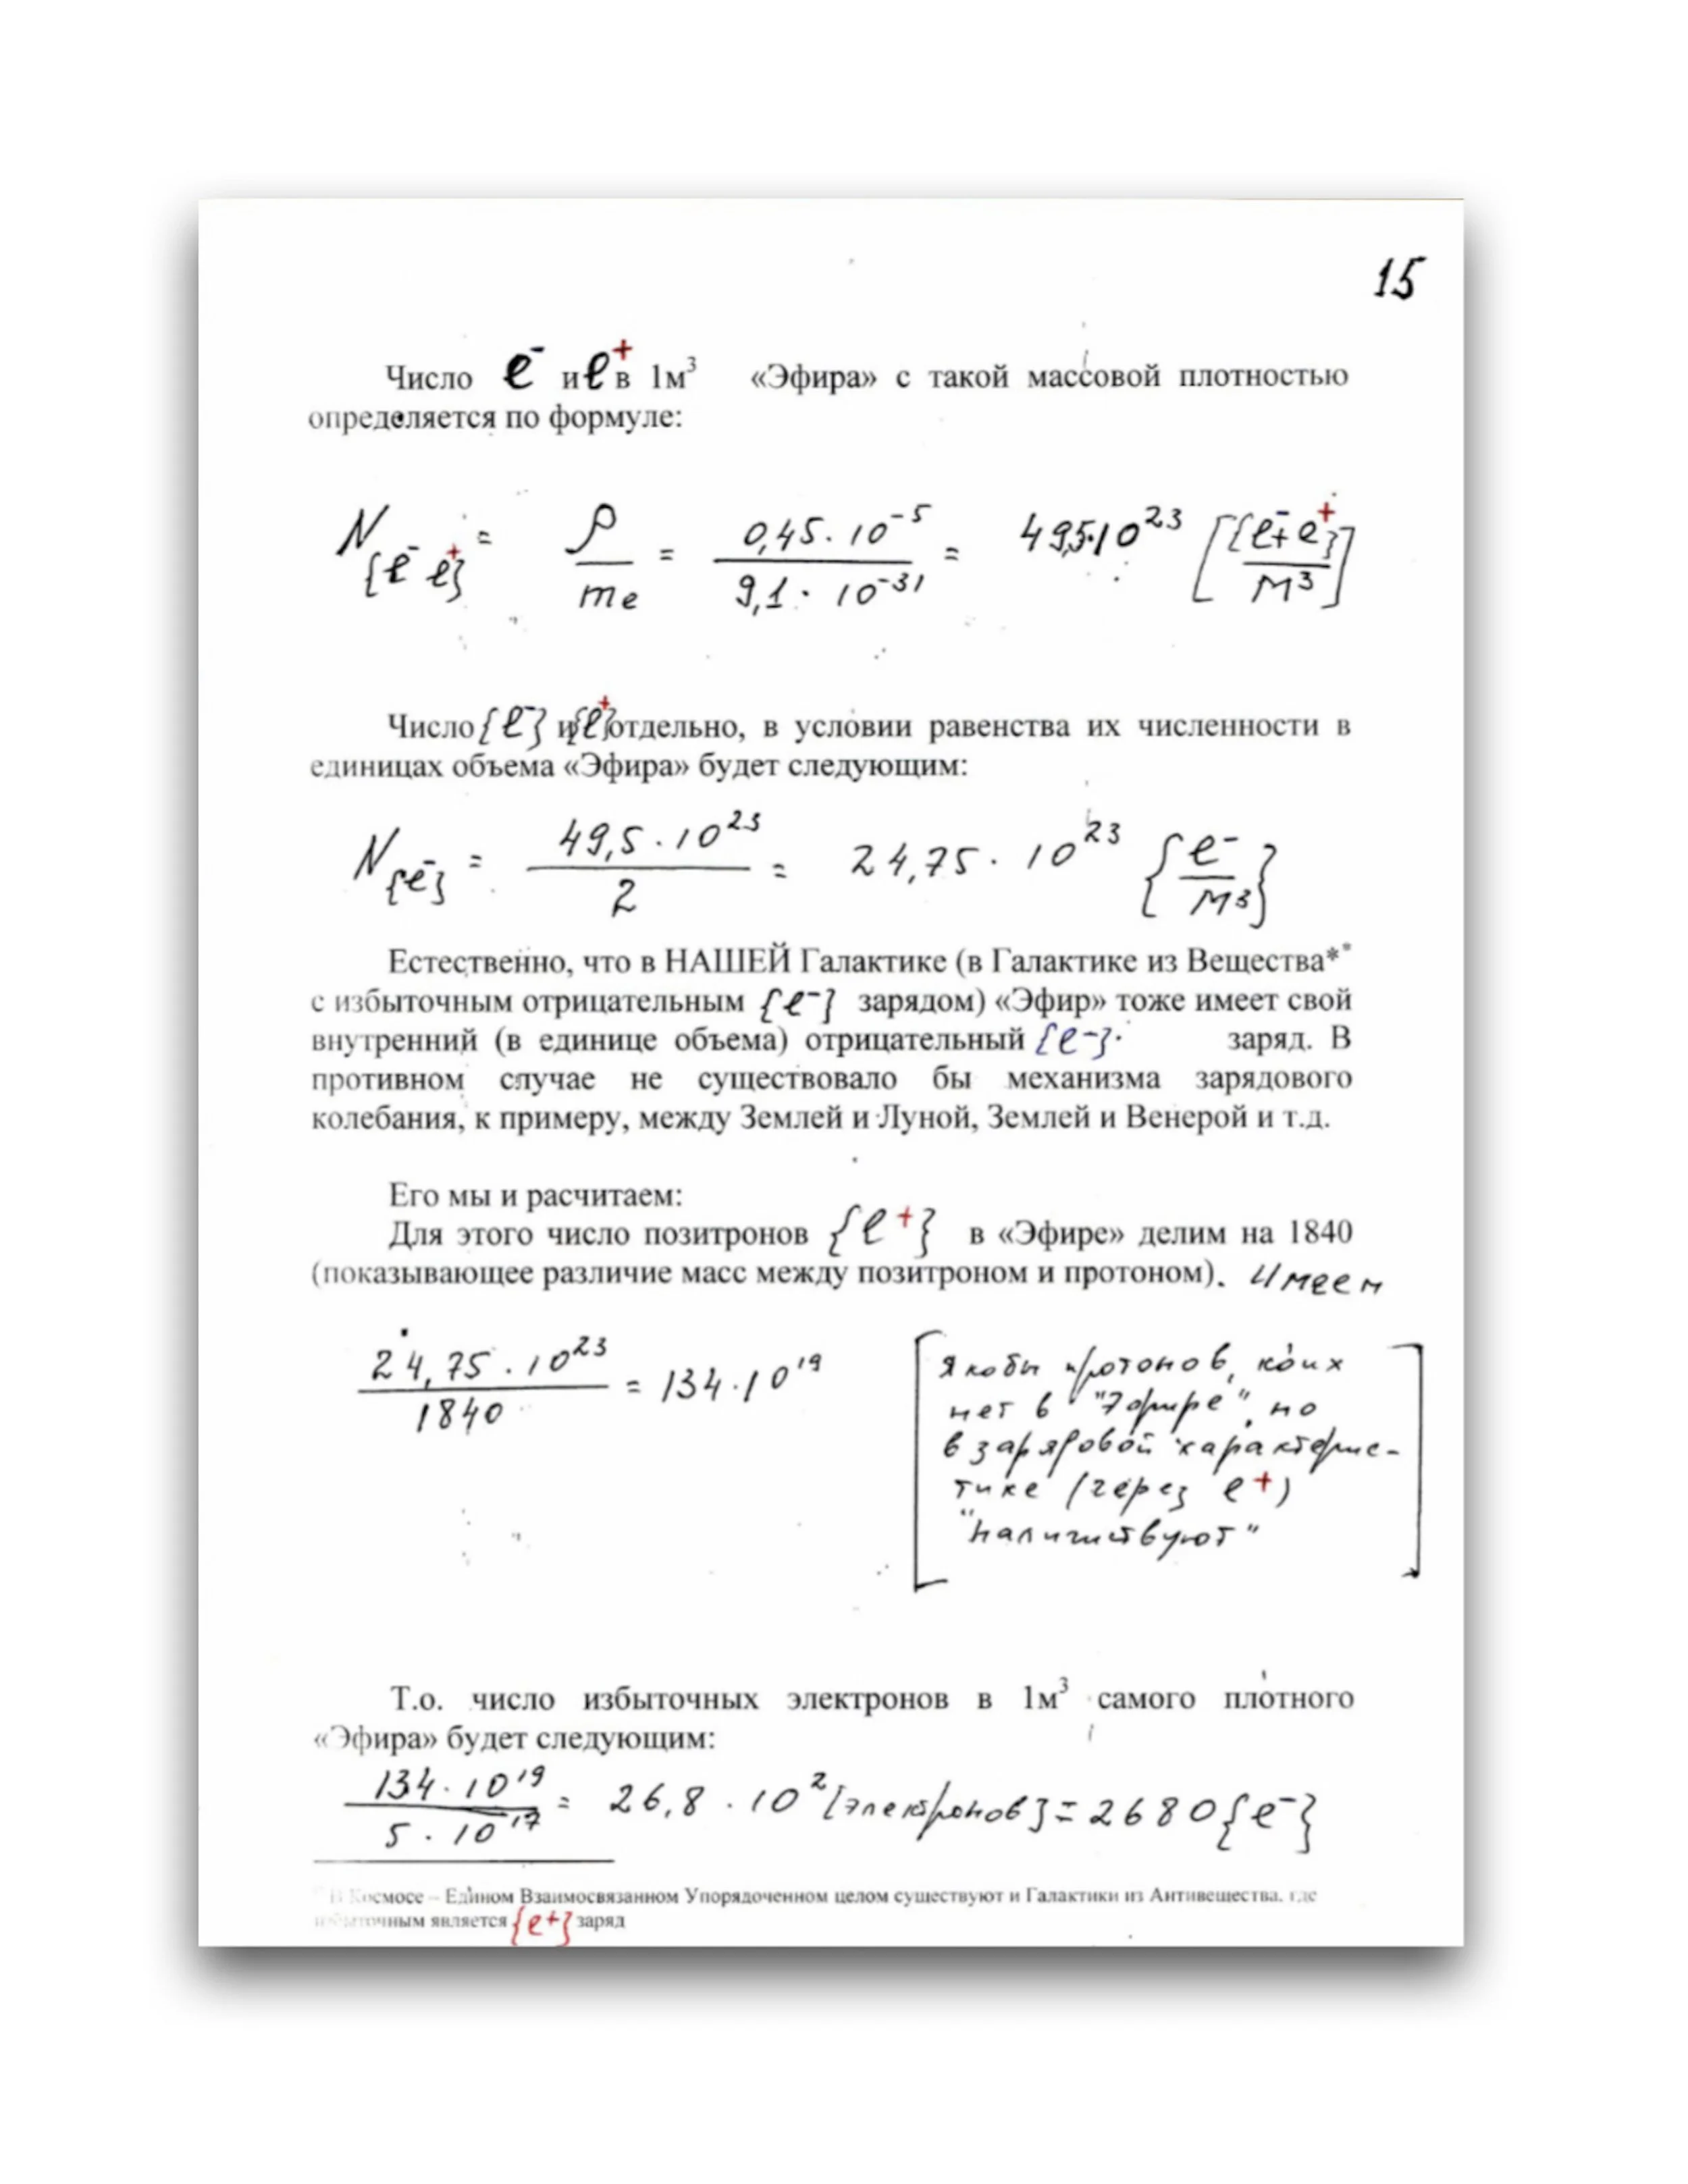 15
Число e⁻ и e⁺ в 1м³ «Эфира» с такой массовой плотностью
определяется по формуле:
N{e⁻ e⁺} = ρ/me = 0,45·10⁻⁵/9,1·10⁻³¹ = 49,5·10²³ [{e⁻+e⁺}/м³]
Число {e⁻} и {e⁺} отдельно, в условии равенства их численности в
единицах объема «Эфира» будет следующим:
N{e⁻} = 49,5·10²³/2 = 24,75·10²³ {e⁻/м³}
Естественно, что в НАШЕЙ Галактике (в Галактике из Вещества**
с избыточным отрицательным {e⁻} зарядом) «Эфир» тоже имеет свой
внутренний (в единице объема) отрицательный {e⁻} заряд. В
противном случае не существовало бы механизма зарядового
колебания, к примеру, между Землей и Луной, Землей и Венерой и т.д.
Его мы и расчитаем:
Для этого число позитронов {e⁺} в «Эфире» делим на 1840
(показывающее различие масс между позитроном и протоном). Имеем
24,75·10²³/1840 = 134·10¹⁹
[Якобы протонов, коих
нет в "Эфире", но
в зарядовой характерис-
тике (через e⁺)
"наличиствуют"]
Т.о. число избыточных электронов в 1м³ самого плотного
«Эфира» будет следующим:
134·10¹⁹/5·10¹⁷ = 26,8·10² [электронов] = 2680{e⁻}
В Космосе – Едином Взаимосвязанном Упорядоченном целом существуют и Галактики из Антивещества, где
избыточным является {e+} заряд